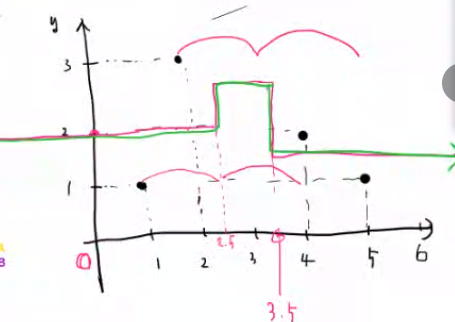 y
3
2
1
0
1
2
2.5
3
4
5
6
3.5
B